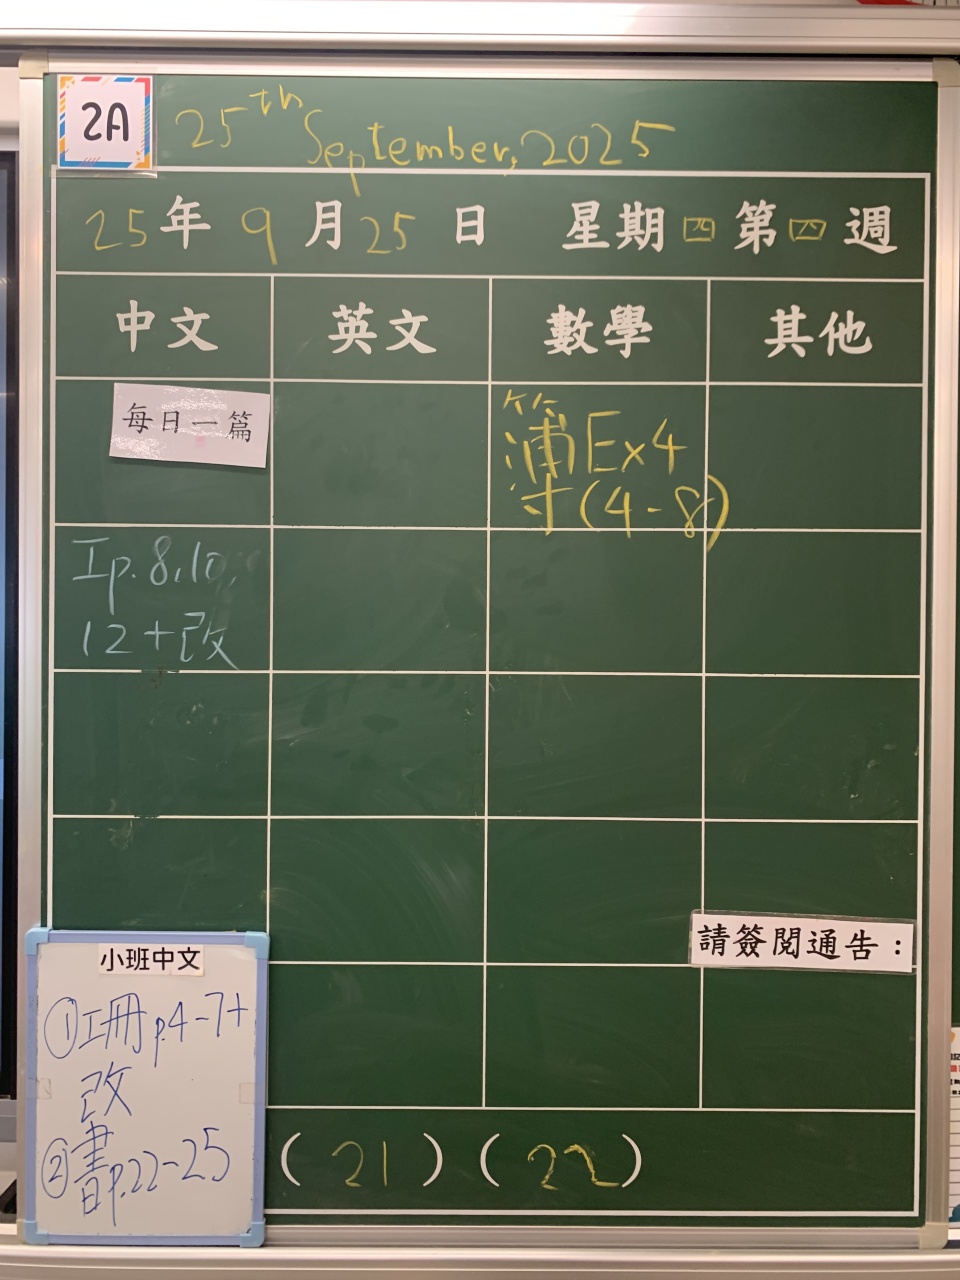 2A
25th September, 2025
25年9月25日 星期四第四週
中文 英文 數學 其他
每日一篇
簿Ex4
(4-8)
工p.8,10,
12+改
請簽閱通告：
小班中文
①工冊p.4-7+
改
②書p.22-25
(21)(22)